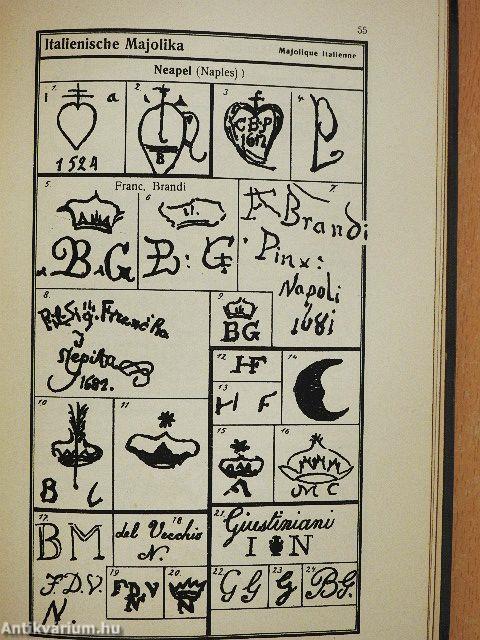 55
Italienische Majolika
Majolique Italienne
Neapel (Naples) )
1.
i a
1524
2.
B
3
f
C B P
1672
4.
P
Franc. Brandi
5
.B.G
6
B: G
7.
F Brandi
Pinx:
Napoli
1681
8.
1682.
9
BG
10
B C
11
12
HF
13
H F
14
15
A
16
M C
17.
BM
18
del Vecchio
N.
F.D.V.
N.
19
FDV
N
20.
N
21.
Giustiniani
I N
22
G G
23
G
24
BG.
Antikvárium.hu